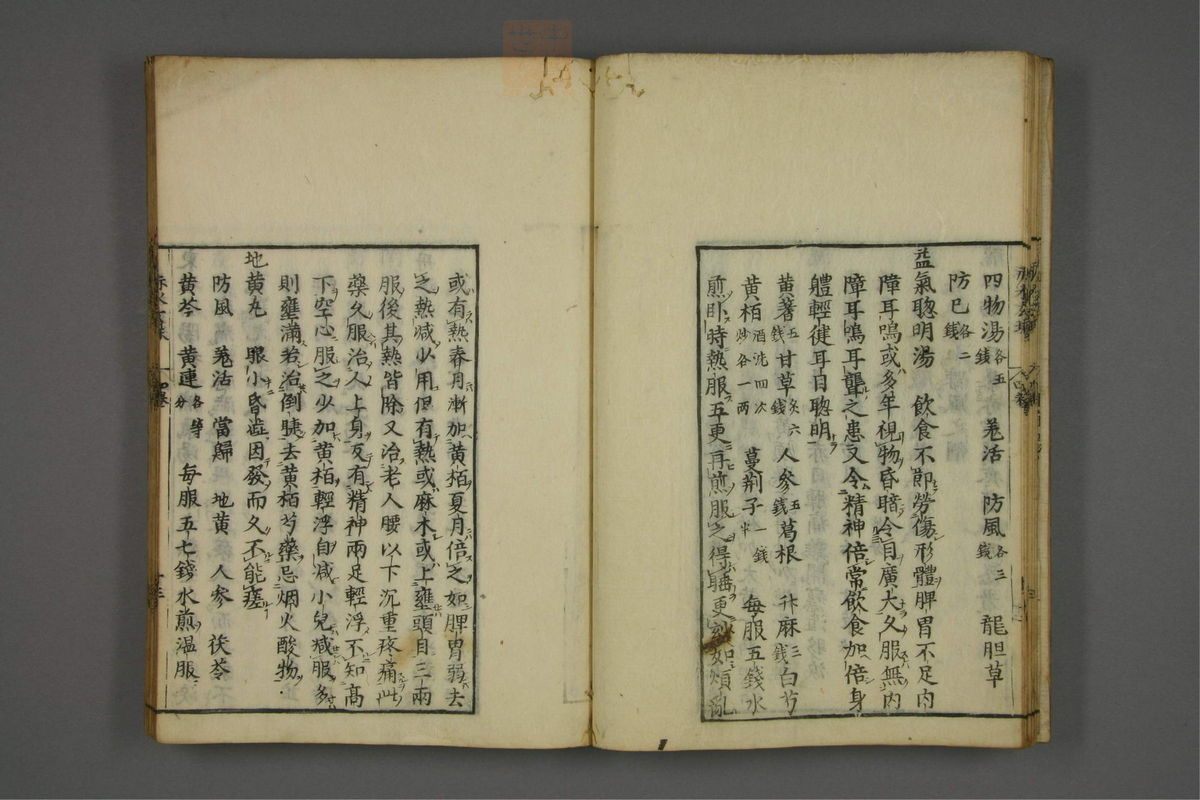 四物湯各五錢 羗活 防風各三錢 龍胆草
防已各二錢
益氣聦明湯 飲食不節勞傷形體脾胃不足内
障耳鳴或多年視物昏暗令目廣大久服無内
障耳鳴耳聾之患又令精神倍常飲食加倍身
軆輕徤耳目聦明
黄蓍五錢甘草炙六錢人參五錢葛根 升麻三錢白芍
黄栢酒洗四次炒各一两 蔓荆子一錢半 每服五錢水
煎卧時熱服五更再煎服之得睡更如煩亂
或有熱春月漸加黄栢夏月倍之如脾胃弱去
之熱减少用但有熱或麻木或上壅頭目三兩
服後其熱皆除又治老人腰以下沉重疼痛此
藥久服治人上身反有精神兩足輕浮不知高
下空心服之少加黄栢輕浮自减小兒减服多
則壅滿若治倒睫去黄栢芍藥忌烟火酸物
地黄丸 眼小昏澁因發而久不能瘥
防風 羗活 當歸 地黄 人參 茯苓
黄芩 黄連各等分 每服五七錢水煎温服